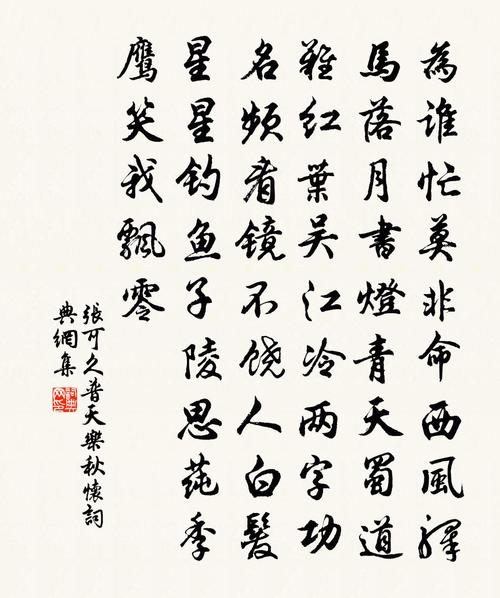 為誰忙莫非命西風驛
馬落月書燈青天蜀道
難紅葉吴江冷兩字功
名頻看鏡不饶人白髮
星星钓鱼子陵思莼季
鹰笑我飄零
張可久普天樂秋懷詞
典網集